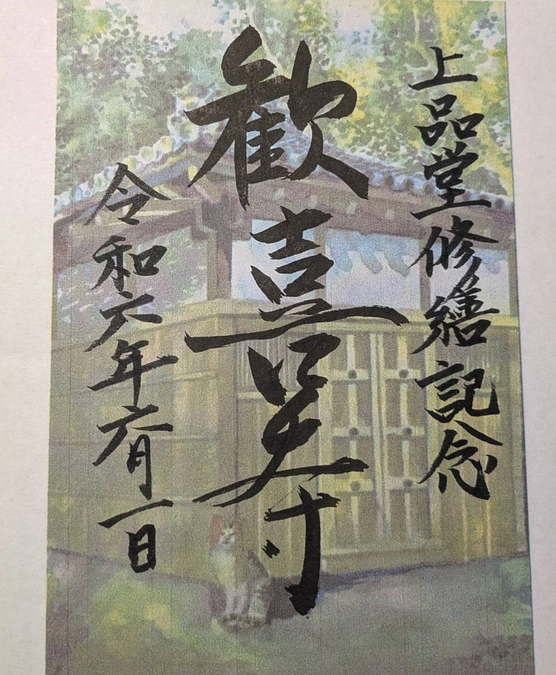 上品堂修繕記念
歓喜天寺
令和六年六月一日